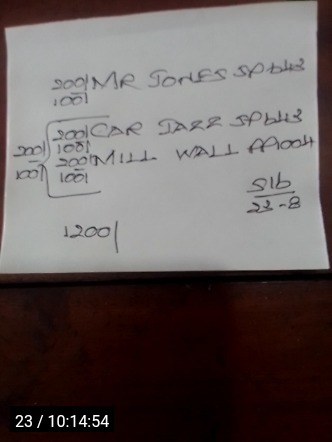 200/ MR JONES SP643
100/
200/ CAR JAZZ SP643
100/
200/ MILL WALL AA004
100/
200/
100/
S16
23-8
1200/
23 / 10:14:54